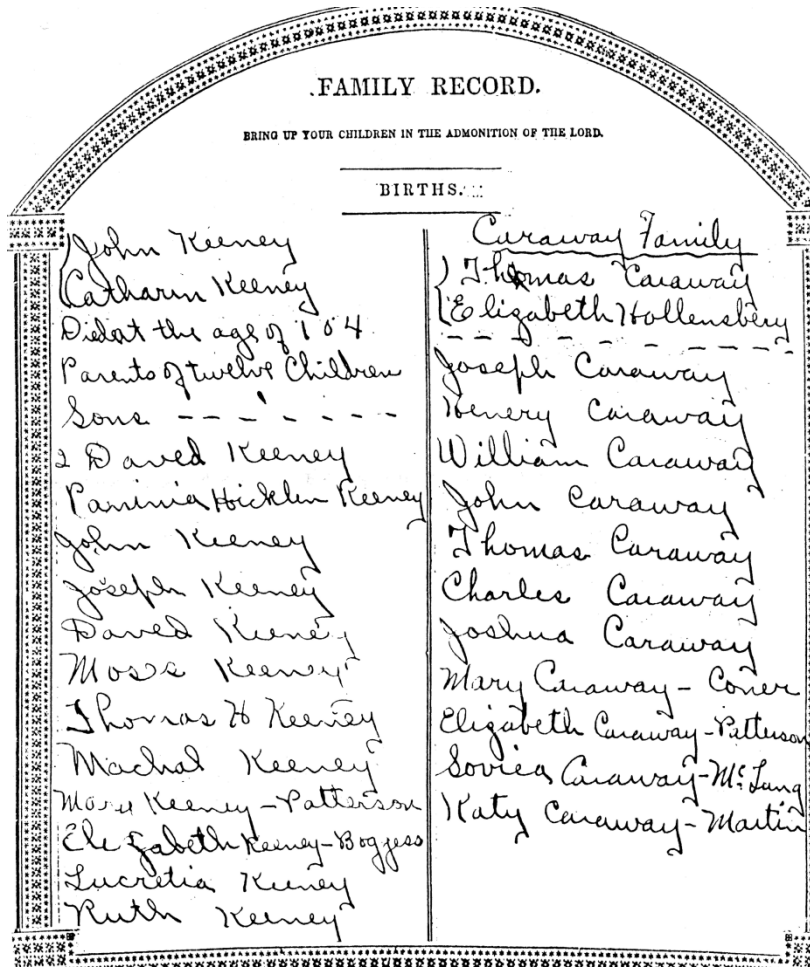 FAMILY RECORD.
BRING UP YOUR CHILDREN IN THE ADMONITION OF THE LORD.
BIRTHS.
John Keeney
Catharin Keeney
Died at the age of 104
Parents of twelve Children
Sons - - - - - - - -
2 Daved Keeney
Hicklen Keeney
John Keeney
Joseph Keeney
Daved Keeney
Moses Keeney
Thomas H Keeney
Machal Keeney
Mary Keeney - Patterson
Elezabeth Keeney - Boggess
Lucretia Keeney
Ruth Keeney
Caraway Family
Thomas Caraway
Elizabeth Hollensbery
Joseph Caraway
Henery Caraway
William Caraway
John Caraway
Thomas Caraway
Charles Caraway
Joshua Caraway
Mary Caraway - Coner
Elizabeth Caraway - Patterson
Caraway - Mc Lung
Katy Caraway - Martin